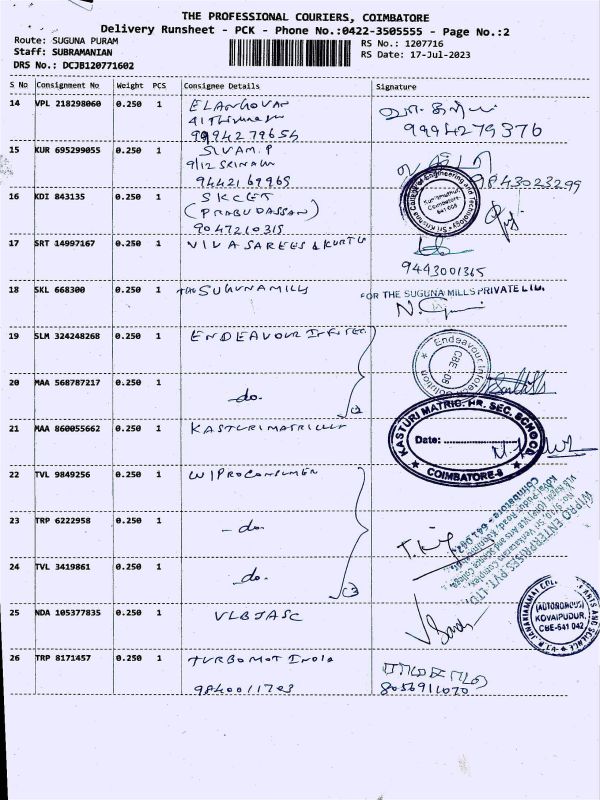 THE PROFESSIONAL COURIERS, COIMBATORE
Delivery Runsheet - PCK - Phone No.:0422-3505555 - Page No.:2
Route: SUGUNA PURAM
Staff: SUBRAMANIAN
DRS No.: DCJB120771602
RS No.: 1207716
RS Date: 17-Jul-2023
S No Consignment No Weight PCS Consignee Details Signature
14 VPL 218298060 0.250 1 ELANGOVAN
9994279654
9994279376
15 KUR 695299055 0.250 1 SIVAM.P
9442169969
9843023299
16 KDI 843135 0.250 1 SKCET
(PRABUDASSAN)
9047210315
Sri Krishna College of Engineering and Technology
Kuniamuthur, Coimbatore- 641 008
17 SRT 14997167 0.250 1 VIVA SAREES & KURTIS
9443001365
18 SKL 668300 0.250 1 THE SUGUNA MILLS
FOR THE SUGUNA MILLS PRIVATE LTD.
19 SLM 324248268 0.250 1 ENDEAVOUR INFOTEC
Endeavour Infotech Solution
CBE-08
20 MAA 568787217 0.250 1 -do-
21 MAA 860055662 0.250 1 KASTURI MATRIC
KASTURI MATRIC. HR. SEC. SCHOOL
Date:
COIMBATORE-8
22 TVL 9849256 0.250 1 WIPRO CONSUMER
WIPRO ENTERPRISES PVT. LTD.
23 TRP 6222958 0.250 1 -do-
24 TVL 3419861 0.250 1 -do-
25 NDA 105377835 0.250 1 VLBJASC
(AUTONOMOUS)
KOVAIPUDUR,
CBE-641 042
26 TRP 8171457 0.250 1 TURBOMOT INDIA
9840011703
8056911070